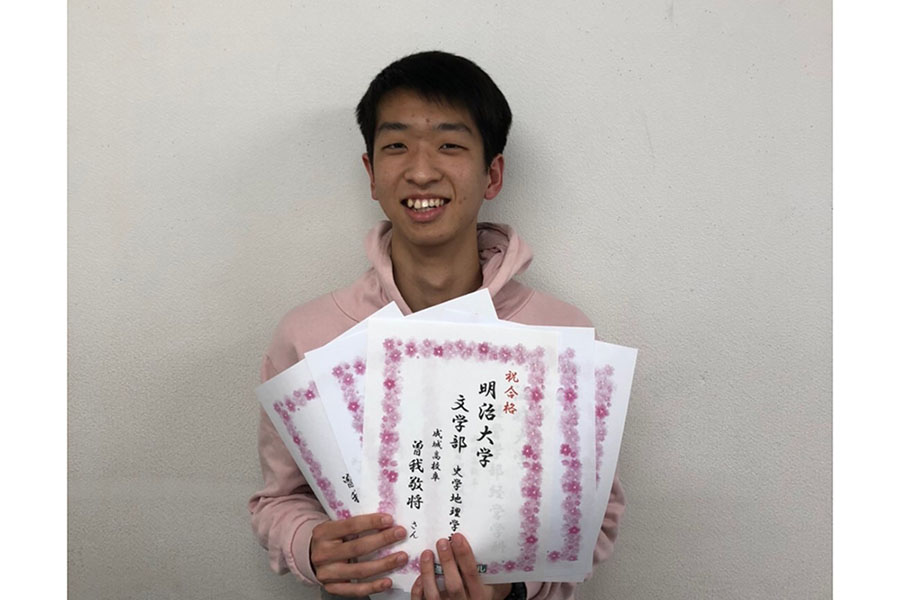 祝合格
明治大学
文学部 史学地理学
成城高校卒
曽我敬将 さん
曽我